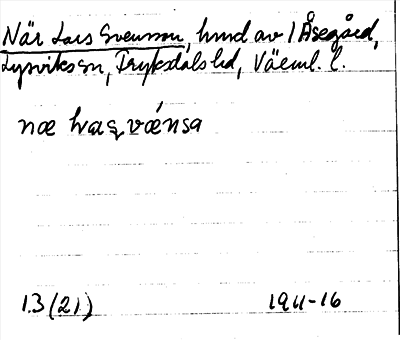 När Lars Svensson, hmd av 1 Åsegård,
Lysviks sn, Fryksdals hd, Värml. l.
næ lvaʂ vænsa
13 (21) 1911-16